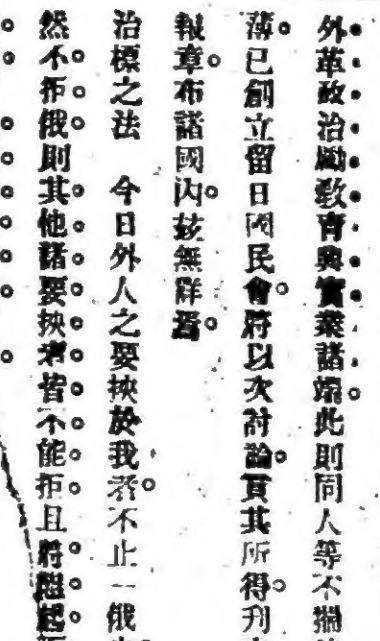 外革政治勵敎育興實業諸端此則同人等不揣
薄已創立留日國民會將以次討論貢其所得刋
報章布諸國內茲無詳焉
治標之法　今日外人之要挾於我者不止一俄
然不拒俄則其他諸要挾者皆不能拒且將羣起